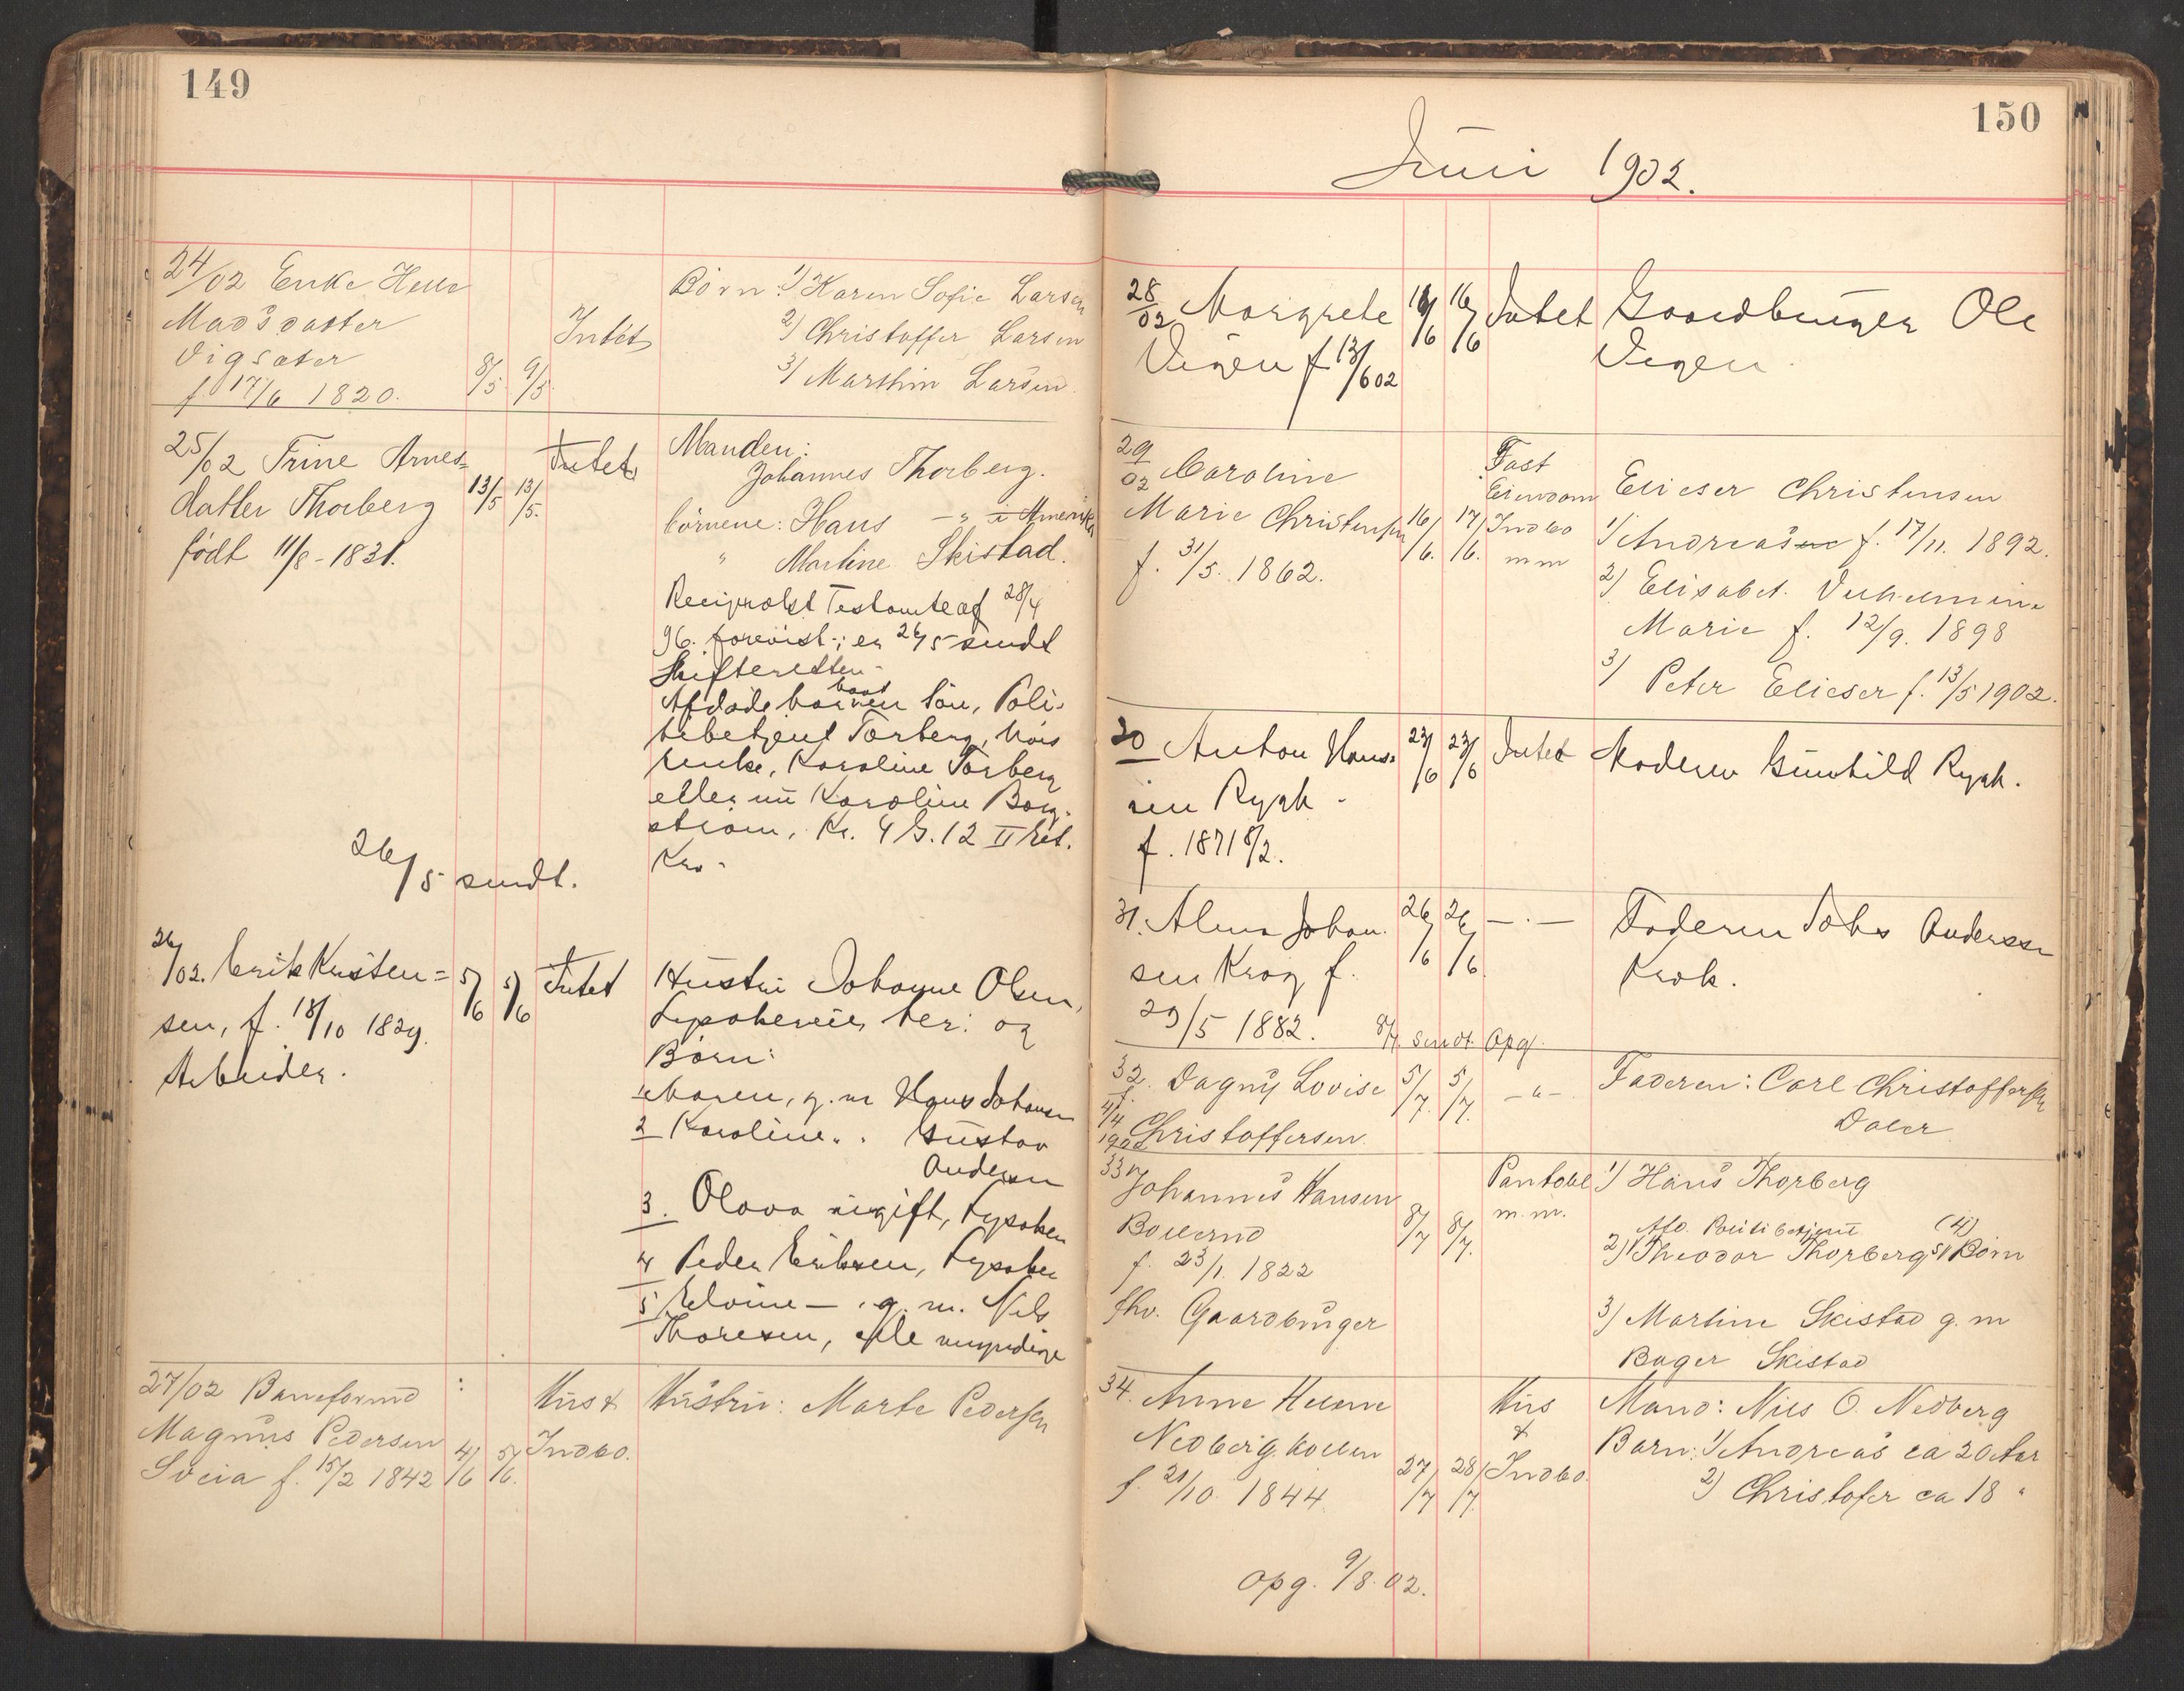 149
24/02 Enke Helle
Madsdatter
Vigsæter
f. 17/6 1820.
8/5 9/5
Intet
Børn: 1) Karen Sofie Larsen
2) Christoffer Larsen
3) Marthin Larsen.
25/02 Trine Arnes=
datter Thorberg
født 11/8 - 1831.
13/5 13/5.
Intet
Manden:
Johannes Thorberg.
börnene: Hans - " i Amerika
" Martine Skistad.
Reciprokt Testamte af 28/4
96. forevist; er 26/5 sendt
Skifteretten -
Afdøde havt en Sön, Poli-
tibetjent Torberg, hvis
Enke, Karoline Torberg
eller nu Karoline Borg-
ström, Kr. 4 G. 12 II Et.
Kra -
26/5 sendt.
26/02. Erik Kristen=
sen, f. 18/10 1829.
Arbeider.
5/6 5/6
Intet
Hustru Johanne Olsen,
Lysakereie her. og
Børn:
1 Maren, g. m Hans Johansen
2 Karoline " " Gustav
Andersen
3. Olava ugift, Lysaker
4 Peder Eriksen, Lysaker
5 Elvine - " g. m. Nils
Thoresen, alle myndige
27/02 Baneformd
Magnus Pedersen
Sveia f. 15/2 1842
4/6 5/6.
Hus &
Indbo.
Hustru: Marte Pedersen
150
Juni 1902.
28/02 Margrete
Vegen f 13/6 02
16/6 16/6
Intet
Gaardbruger Ole
Vegen.
29/02 Caroline
Marie Christensen
f. 31/5. 1862.
16/6. 17/6.
Fast
Eiendom
Indbo
m m
Elieser Christensen
1) Andreas f. 17/11. 1892.
2) Elisabet Vilhelmine
Marie f. 12/9. 1898
3) Peter Elieser f. 13/5 1902.
30 Anton Hans-
sen Rygh -
f. 1871 8/2.
23/6 23/6
Intet
Moderen Gunhild Rygh.
31. Alma Johan-
sen Krog f.
29/5 1882.
26/6 26/6.
- . -
Faderen Johs Anderssen
Krok.
8/7 sendt Opg.
32. Dagny Lovise
f. 4/4 1902 Christoffersen.
5/7. 5/7.
- " -
Faderen: Carl Christoffersen
Daler
33 Johannes Hansen
Bollerud
f. 23/1. 1822
fhv. Gaardbruger
8/7 8/7.
Pantobl
m. m.
1) Hans Thorberg
Afd. Politibetjent (4)
2) Theodor Thorbergs Børn
3) Martine Skistad g. m
Bager Skistad
34. Anne Helene
Nedberg. Kollen
f. 21/10. 1844.
27/7 28/7.
Hus
&
Indbo.
Mand: Nils O. Nedberg
Barn: 1) Andreas ca 20 Aar
2) Christofer ca 18 "
Opg. 9/8. 02.